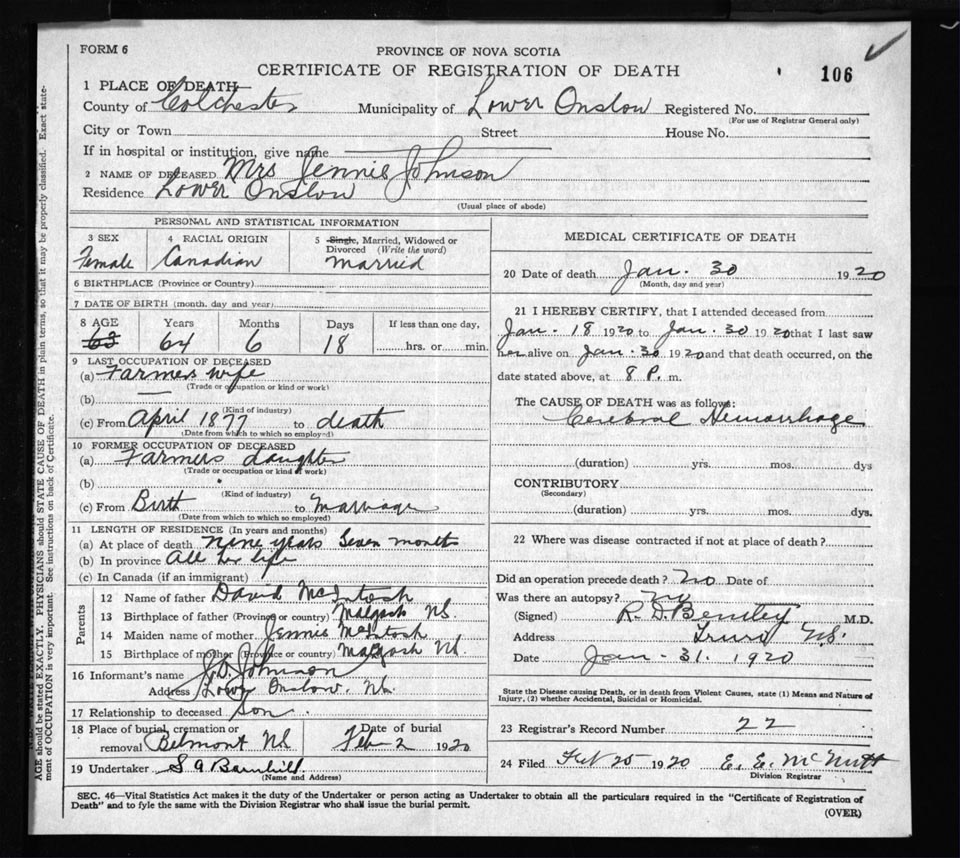 FORM 6
PROVINCE OF NOVA SCOTIA
CERTIFICATE OF REGISTRATION OF DEATH
106
1 PLACE OF DEATH
County of Colchester Municipality of Lower Onslow Registered No.
(For use of Registrar General only)
City or Town Street House No.
If in hospital or institution, give name
2 NAME OF DECEASED Mrs Jennie Johnson
Residence Lower Onslow
(Usual place of abode)
PERSONAL AND STATISTICAL INFORMATION
3 SEX 4 RACIAL ORIGIN 5 Single, Married, Widowed or
Divorced (Write the word)
Female Canadian Married
6 BIRTHPLACE (Province or Country)
7 DATE OF BIRTH (month, day and year)
8 AGE Years Months Days If less than one day,
63 64 6 18 hrs. or min.
9 LAST OCCUPATION OF DECEASED
(a) Farmers wife
(Trade or occupation or kind or work)
(b)
(Kind of industry)
(c) From April 1877 to death
(Date from which to which so employed)
10 FORMER OCCUPATION OF DECEASED
(a) Farmers daughter
(Trade or occupation or kind of work)
(b)
(Kind of industry)
(c) From Birth to Marriage
(Date from which to which so employed)
11 LENGTH OF RESIDENCE (In years and months)
(a) At place of death Nine years Seven month
(b) In province All her life
(c) In Canada (if an immigrant)
Parents
12 Name of father David McIntosh
13 Birthplace of father (Province or country) Malgash NS.
14 Maiden name of mother Jennie McIntosh
15 Birthplace of mother (Province or country) Malgash NS.
16 Informant's name J.D. Johnson
Address Lower Onslow. NS.
17 Relationship to deceased Son.
18 Place of burial, cremation or Date of burial
removal Belmont NS Feb 2 1920
19 Undertaker S A Barnhill
(Name and Address)
MEDICAL CERTIFICATE OF DEATH
20 Date of death Jan. 30 1920
(Month, day and year)
21 I HEREBY CERTIFY, that I attended deceased from
Jan. 18 1920 to Jan. 30 1920 that I last saw
her alive on Jan. 30 1920 and that death occurred, on the
date stated above, at 8 P. m.
The CAUSE OF DEATH was as follows:
Cerebral Hemorrhage
(duration) yrs. mos. dys
CONTRIBUTORY
(Secondary)
(duration) yrs. mos. dys
22 Where was disease contracted if not at place of death?
Did an operation precede death? No Date of
Was there an autopsy? No
(Signed) R. D. Bentley M.D.
Address Truro N.S.
Date Jan - 31. 1920
State the Disease causing Death, or in death from Violent Causes, state (1) Means and Nature of
Injury, (2) whether Accidental, Suicidal or Homicidal.
23 Registrar's Record Number 22
24 Filed Feb 25 1920 E. E. McNutt
Division Registrar
SEC. 46—Vital Statistics Act makes it the duty of the Undertaker or person acting as Undertaker to obtain all the particulars required in the "Certificate of Registration of
Death" and to fyle the same with the Division Registrar who shall issue the burial permit.
(OVER)
AGE should be stated EXACTLY. PHYSICIANS should STATE CAUSE OF DEATH in plain terms, so that it may be properly classified. Exact state-
ment of OCCUPATION is very important. See instructions on back of Certificate.